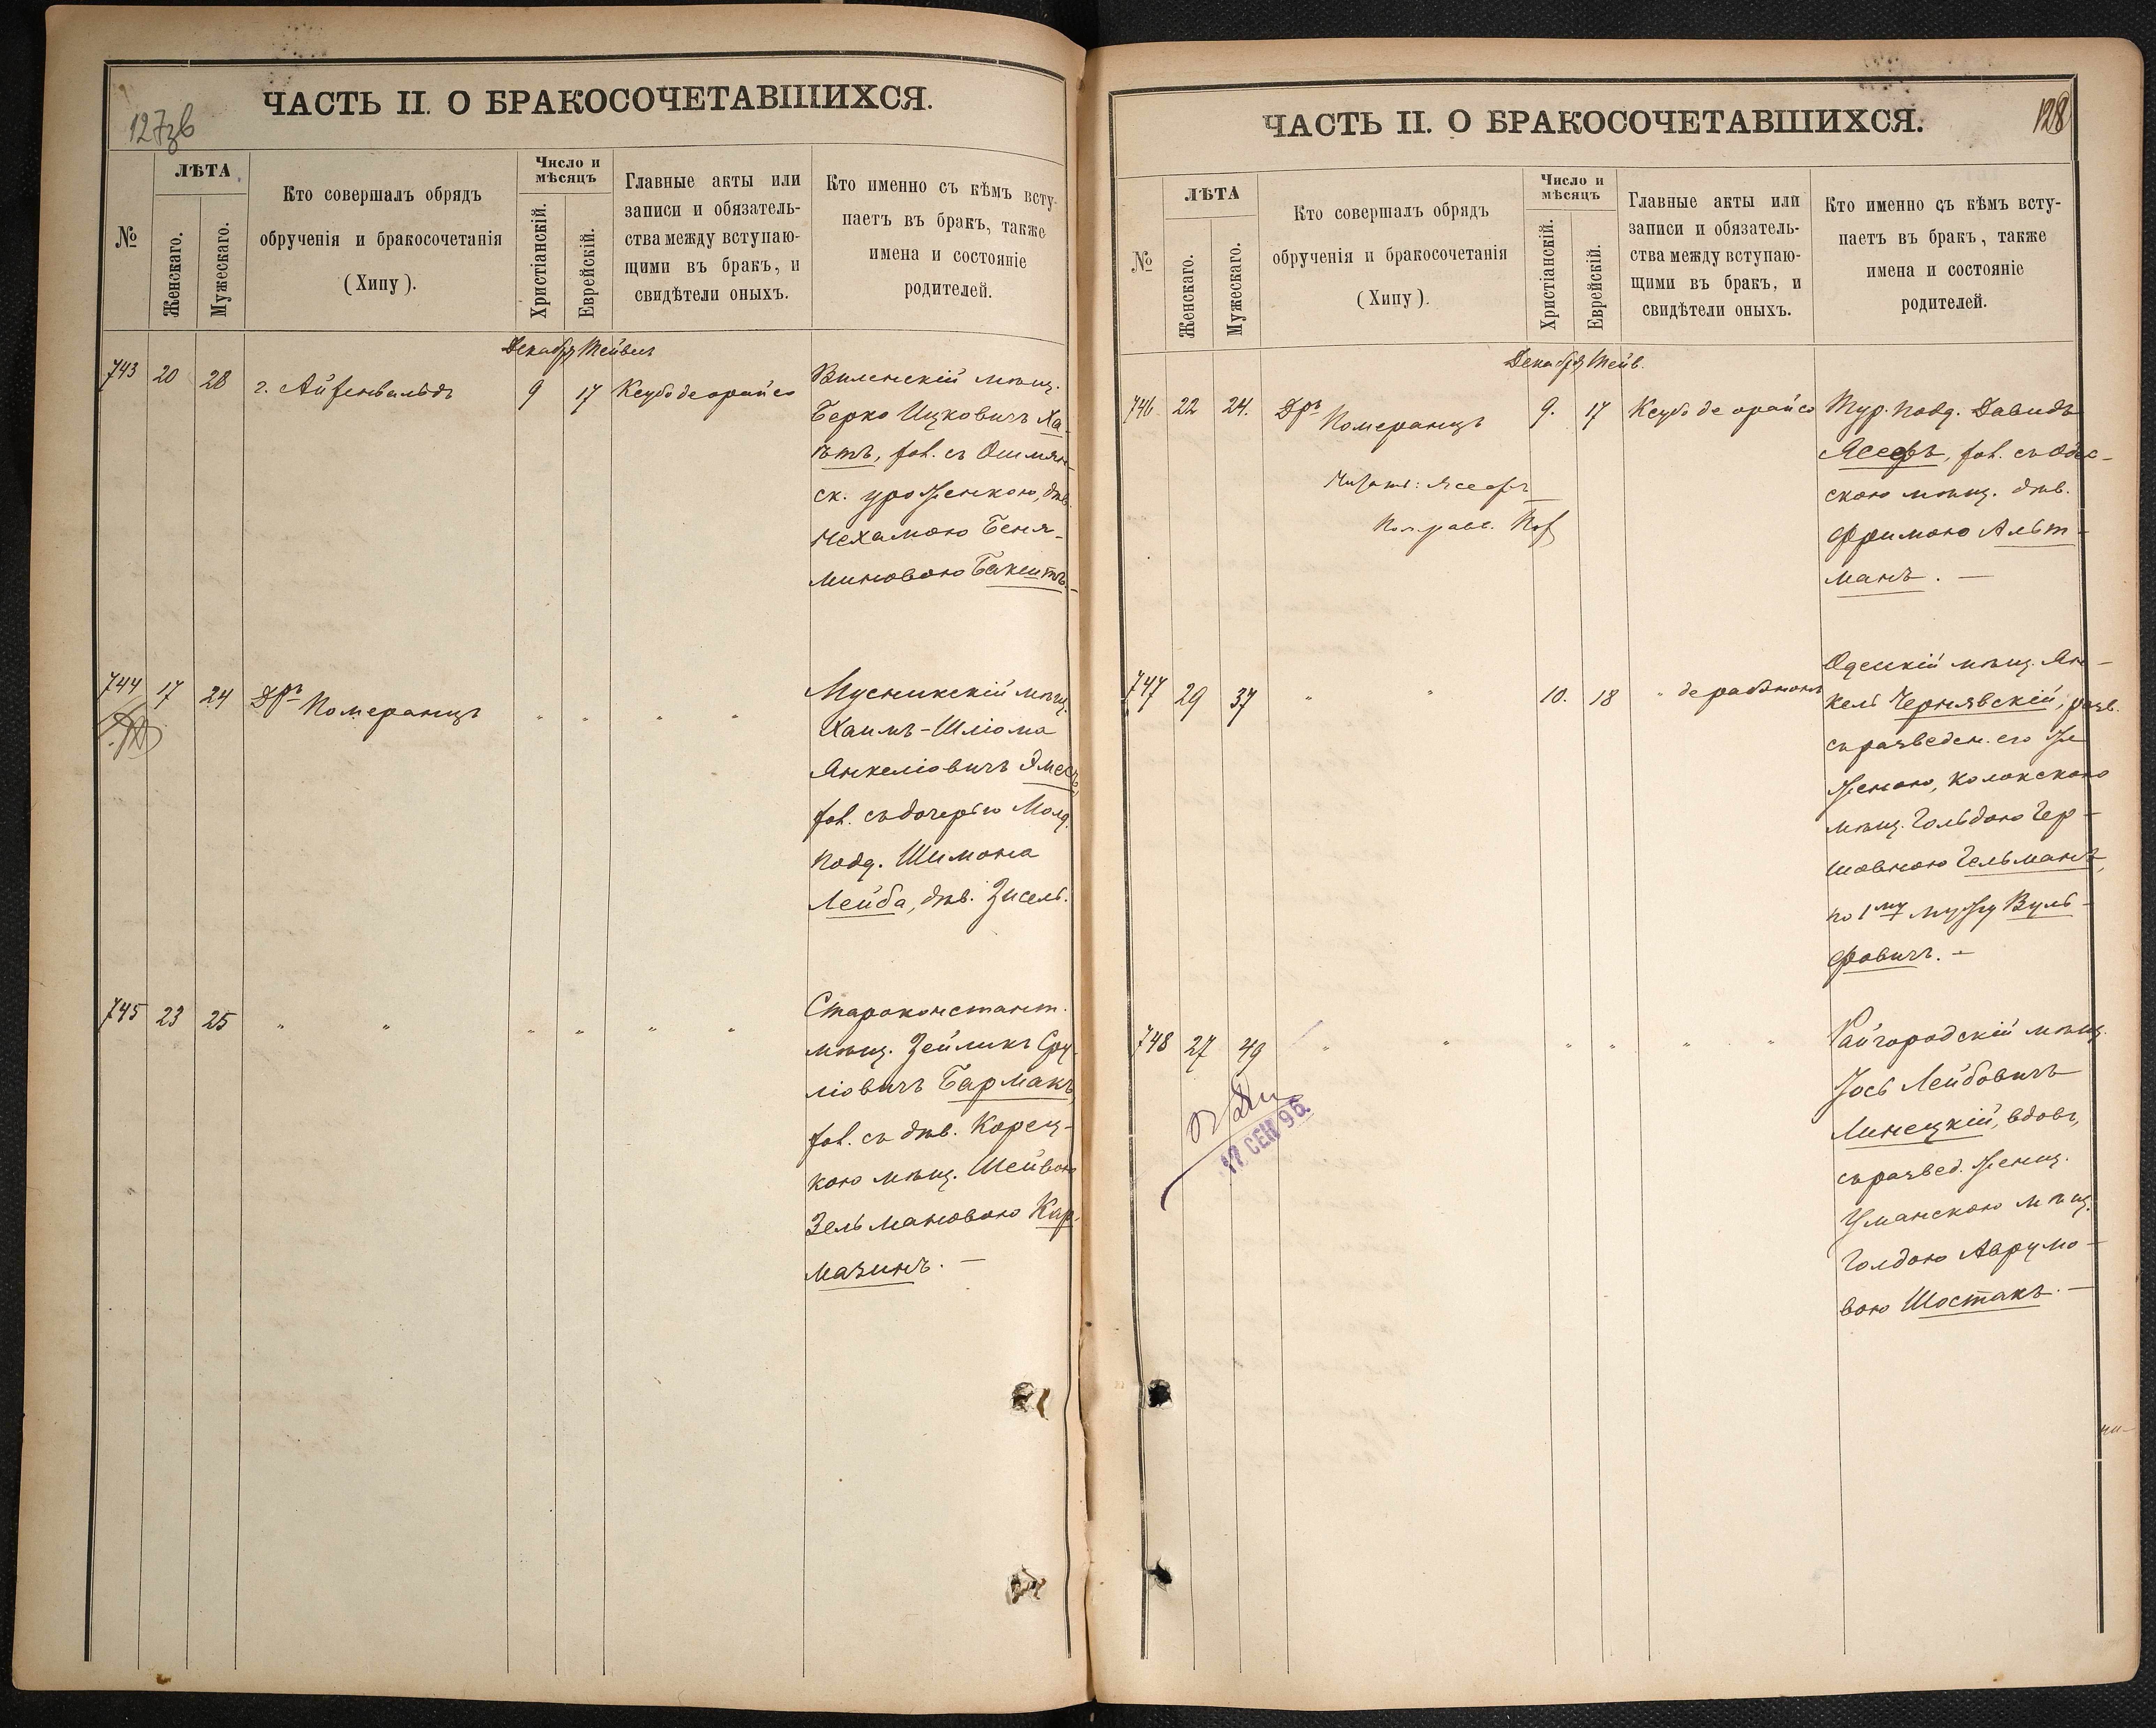 127зв
ЧАСТЬ II. О БРАКОСОЧЕТАВШИХСЯ.
№
ЛѢТА
Женскаго.
Мужескаго.
Кто совершалъ обрядъ
обрученія и бракосочетанія
(Хипу).
Число и
мѣсяцъ
Христіанскій.
Еврейскій.
Главные акты или
записи и обязатель-
ства между вступаю-
щими въ бракъ, и
свидѣтели оныхъ.
Кто именно съ кѣмъ всту-
паетъ въ бракъ, также
имена и состояніе
родителей.
Декабря Тейвеп
743 20 28 г. Айзенвальдъ 9 17 Ксубо деорайсо
Виленскій мѣщ.
Берко Ицковичъ Ха-
съ Ошмян-
ск. уроженкою, дѣв.
Нехамою Беня-
миновою Бакштъ. —
744 17 24 Дръ Померанцъ " " " "
Мусникскій мѣщ.
Хаимъ-Шліома
Янкеліовичъ Эмесъ,
съ дочерью Молд.
подд. Шимона
Лейба, дѣв. Зисель.
745 23 25 " " " " " "
Староконстант.
мѣщ. Зейликъ Сру-
ліовичъ Бармакъ,
съ дѣв. Корец-
кою мѣщ. Шейвою
Зельмановою Кар-
мазинъ. —
128
ЧАСТЬ II. О БРАКОСОЧЕТАВШИХСЯ.
№
ЛѢТА
Женскаго.
Мужескаго.
Кто совершалъ обрядъ
обрученія и бракосочетанія
(Хипу).
Число и
мѣсяцъ
Христіанскій.
Еврейскій.
Главные акты или
записи и обязатель-
ства между вступаю-
щими въ бракъ, и
свидѣтели оныхъ.
Кто именно съ кѣмъ всту-
паетъ въ бракъ, также
имена и состояніе
родителей.
Декабря Тейв.
746. 22 24. Дръ Померанцъ 9. 17 Ксубо де орайсо
Читать: Ясефъ
Тур. подд. Давидъ
Ясефъ, съ Одес-
скою мѣщ. дѣв.
Фримою Альт-
манъ. —
747 29 37 " " 10. 18 " де рабононъ
Одесскій мѣщ. Ян-
кель Чернявскій, разв.
съ разведен. его же
женою,
мѣщ. Гольдою Гер-
шовною Гельманъ,
по 1му мужу Вуль-
фовичъ. —
748 27 49 " " " " " "
17 СЕН 95.
Райгородскій мѣщ.
Іось Лейбовичъ
Линецкій, вдов.,
съ развед. женщ.
Уманскою мѣщ.
Голдою Аврумо-
вою Шостакъ. —